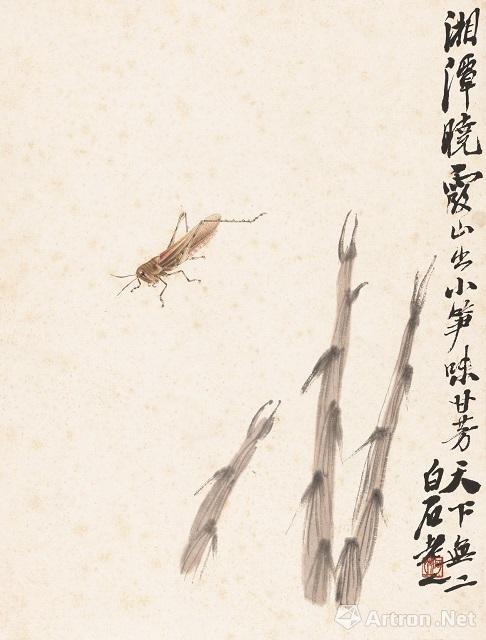 湘潭晓霞山出小笋味甘芳天下無二
白石老
Artron.Net